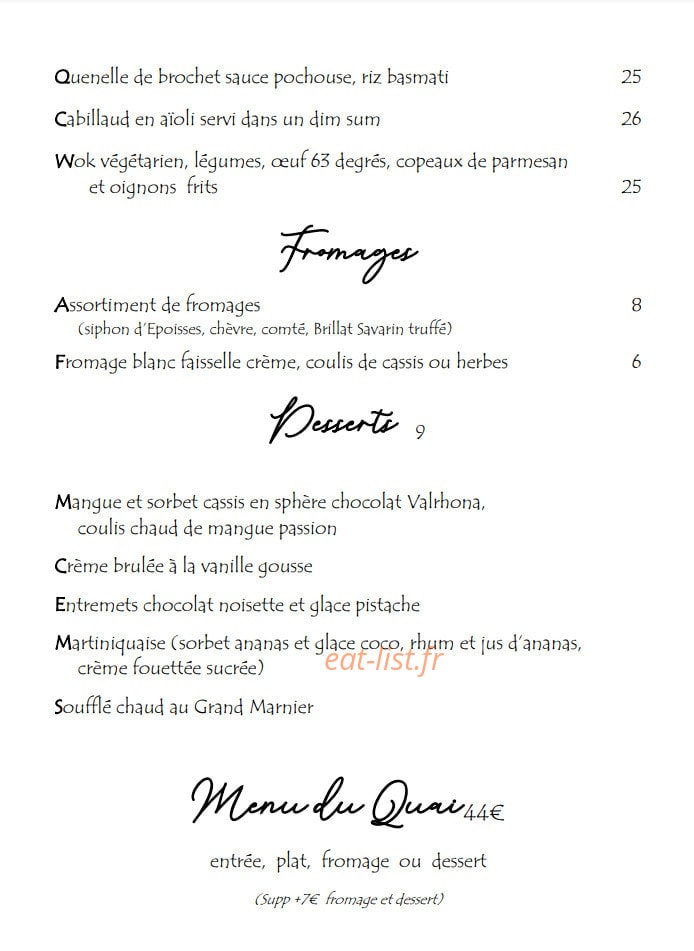 Quenelle de brochet sauce pochouse, riz basmati 25
Cabillaud en aïoli servi dans un dim sum 26
Wok végétarien, légumes, œuf 63 degrés, copeaux de parmesan
et oignons frits 25
Fromages
Assortiment de fromages 8
(siphon d'Epoisses, chèvre, comté, Brillat Savarin truffé)
Fromage blanc faisselle crème, coulis de cassis ou herbes 6
Desserts 9
Mangue et sorbet cassis en sphère chocolat Valrhona,
coulis chaud de mangue passion
Crème brulée à la vanille gousse
Entremets chocolat noisette et glace pistache
Martiniquaise (sorbet ananas et glace coco, rhum et jus d'ananas,
crème fouettée sucrée)
eat-list.fr
Soufflé chaud au Grand Marnier
Menu du Quai 44€
entrée, plat, fromage ou dessert
(Supp +7€ fromage et dessert)